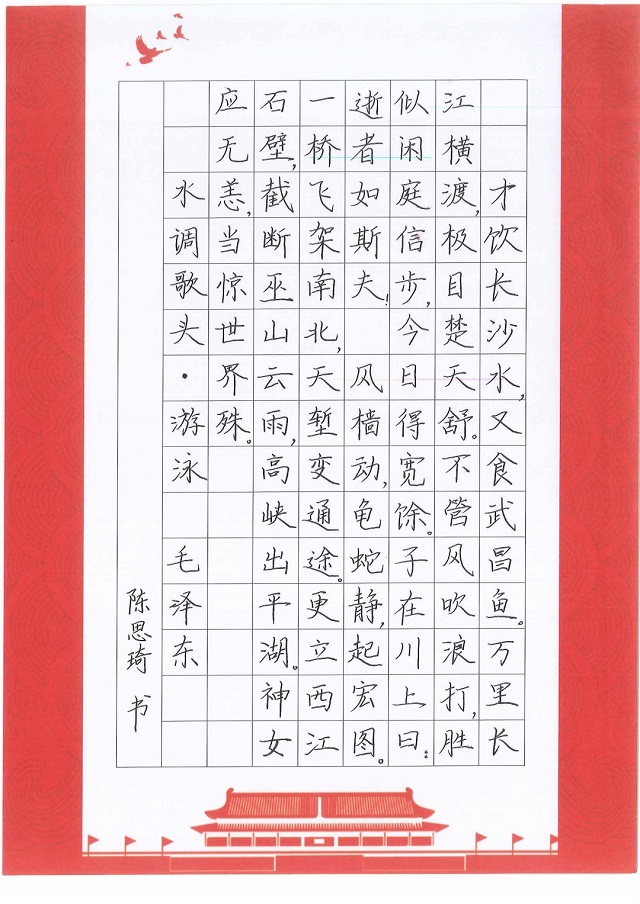 才饮长沙水,又食武昌鱼。万里长
江横渡,极目楚天舒。不管风吹浪打,胜
似闲庭信步,今日得宽馀。子在川上曰:
逝者如斯夫! 风樯动,龟蛇静,起宏图。
一桥飞架南北,天堑变通途。更立西江
石壁,截断巫山云雨,高峡出平湖。神女
应无恙,当惊世界殊。
水调歌头·游泳 毛泽东
陈思琦 书